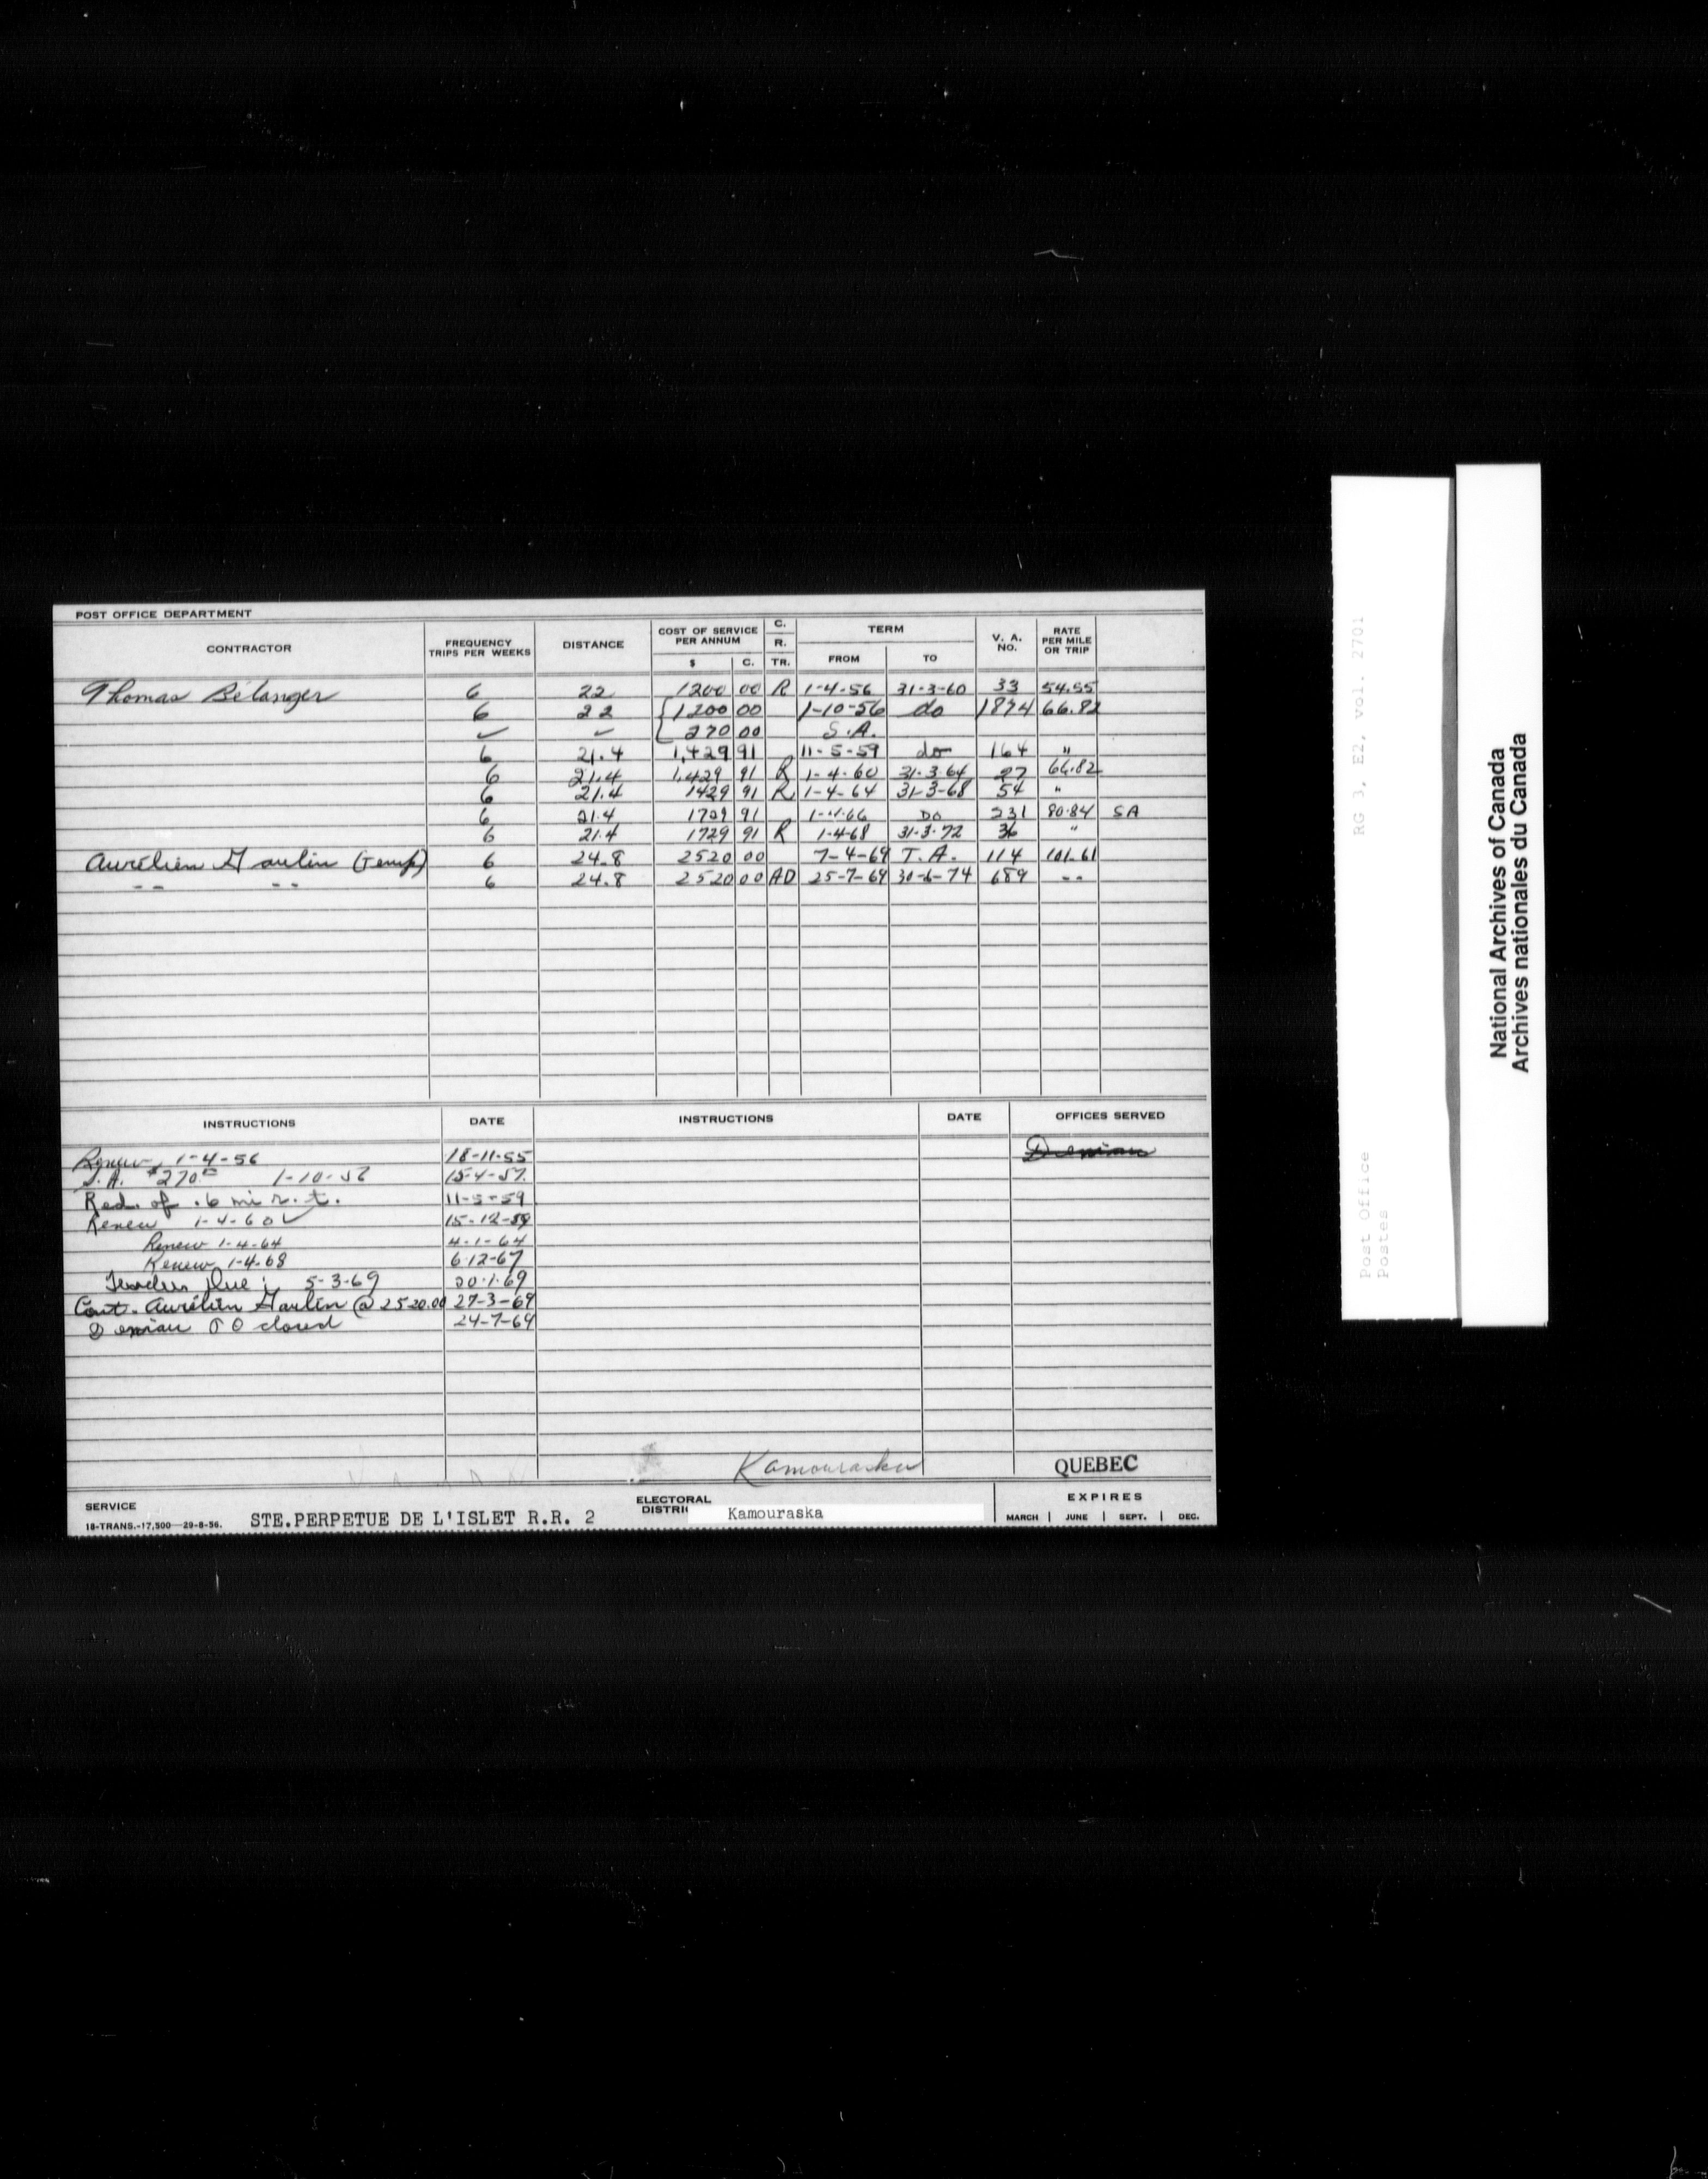 POST OFFICE DEPARTMENT
CONTRACTOR FREQUENCY TRIPS PER WEEKS DISTANCE COST OF SERVICE PER ANNUM $ C. C. R. TR. TERM FROM TO V. A. NO. RATE PER MILE OR TRIP
Thomas Bélanger 6 22 1200 00 R 1-4-56 31-3-60 33 54.55
6 22 { 1200 00 1-10-56 do 1874 66.82
✓ ✓ 270 00 S.A.
6 21.4 1,429 91 11-5-59 do 164 "
6 21.4 1,429 91 R 1-4-60 31-3-64 27 66.82
6 21.4 1429 91 R 1-4-64 31-3-68 54 "
6 21.4 1729 91 Do 231 80.84 SA
6 21.4 1729 91 R 1-4-68 31-3-72 36 "
Aurélien Gaulin (Temp) 6 24.8 2520 00 7-4-69 T.A. 114 101.61
-- -- 6 24.8 2520 00 AD 25-7-69 30-6-74 689 --
INSTRUCTIONS DATE INSTRUCTIONS DATE OFFICES SERVED
Renew 1-4-56 18-11-55
S.A. $270.00 1-10-56 15-4-57
Red. of .6 mi r.t. 11-5-59
Renew 1-4-60 ✓ 15-12-59
Renew 1-4-64 4-1-64
Renew 1-4-68 6-12-67
Tenders Due ; 5-3-69 20-1-69
Cont. Aurélien Gaulin @ 2520.00 27-3-69
PO closed 24-7-69
Kamouraska QUEBEC
SERVICE
18-TRANS.-17,500-29-8-56. STE.PERPETUE DE L'ISLET R.R. 2
ELECTORAL
DISTRIC Kamouraska
EXPIRES
MARCH | JUNE | SEPT. | DEC.
RG 3, E2, vol. 2701
Post Office
Postes
National Archives of Canada
Archives nationales du Canada